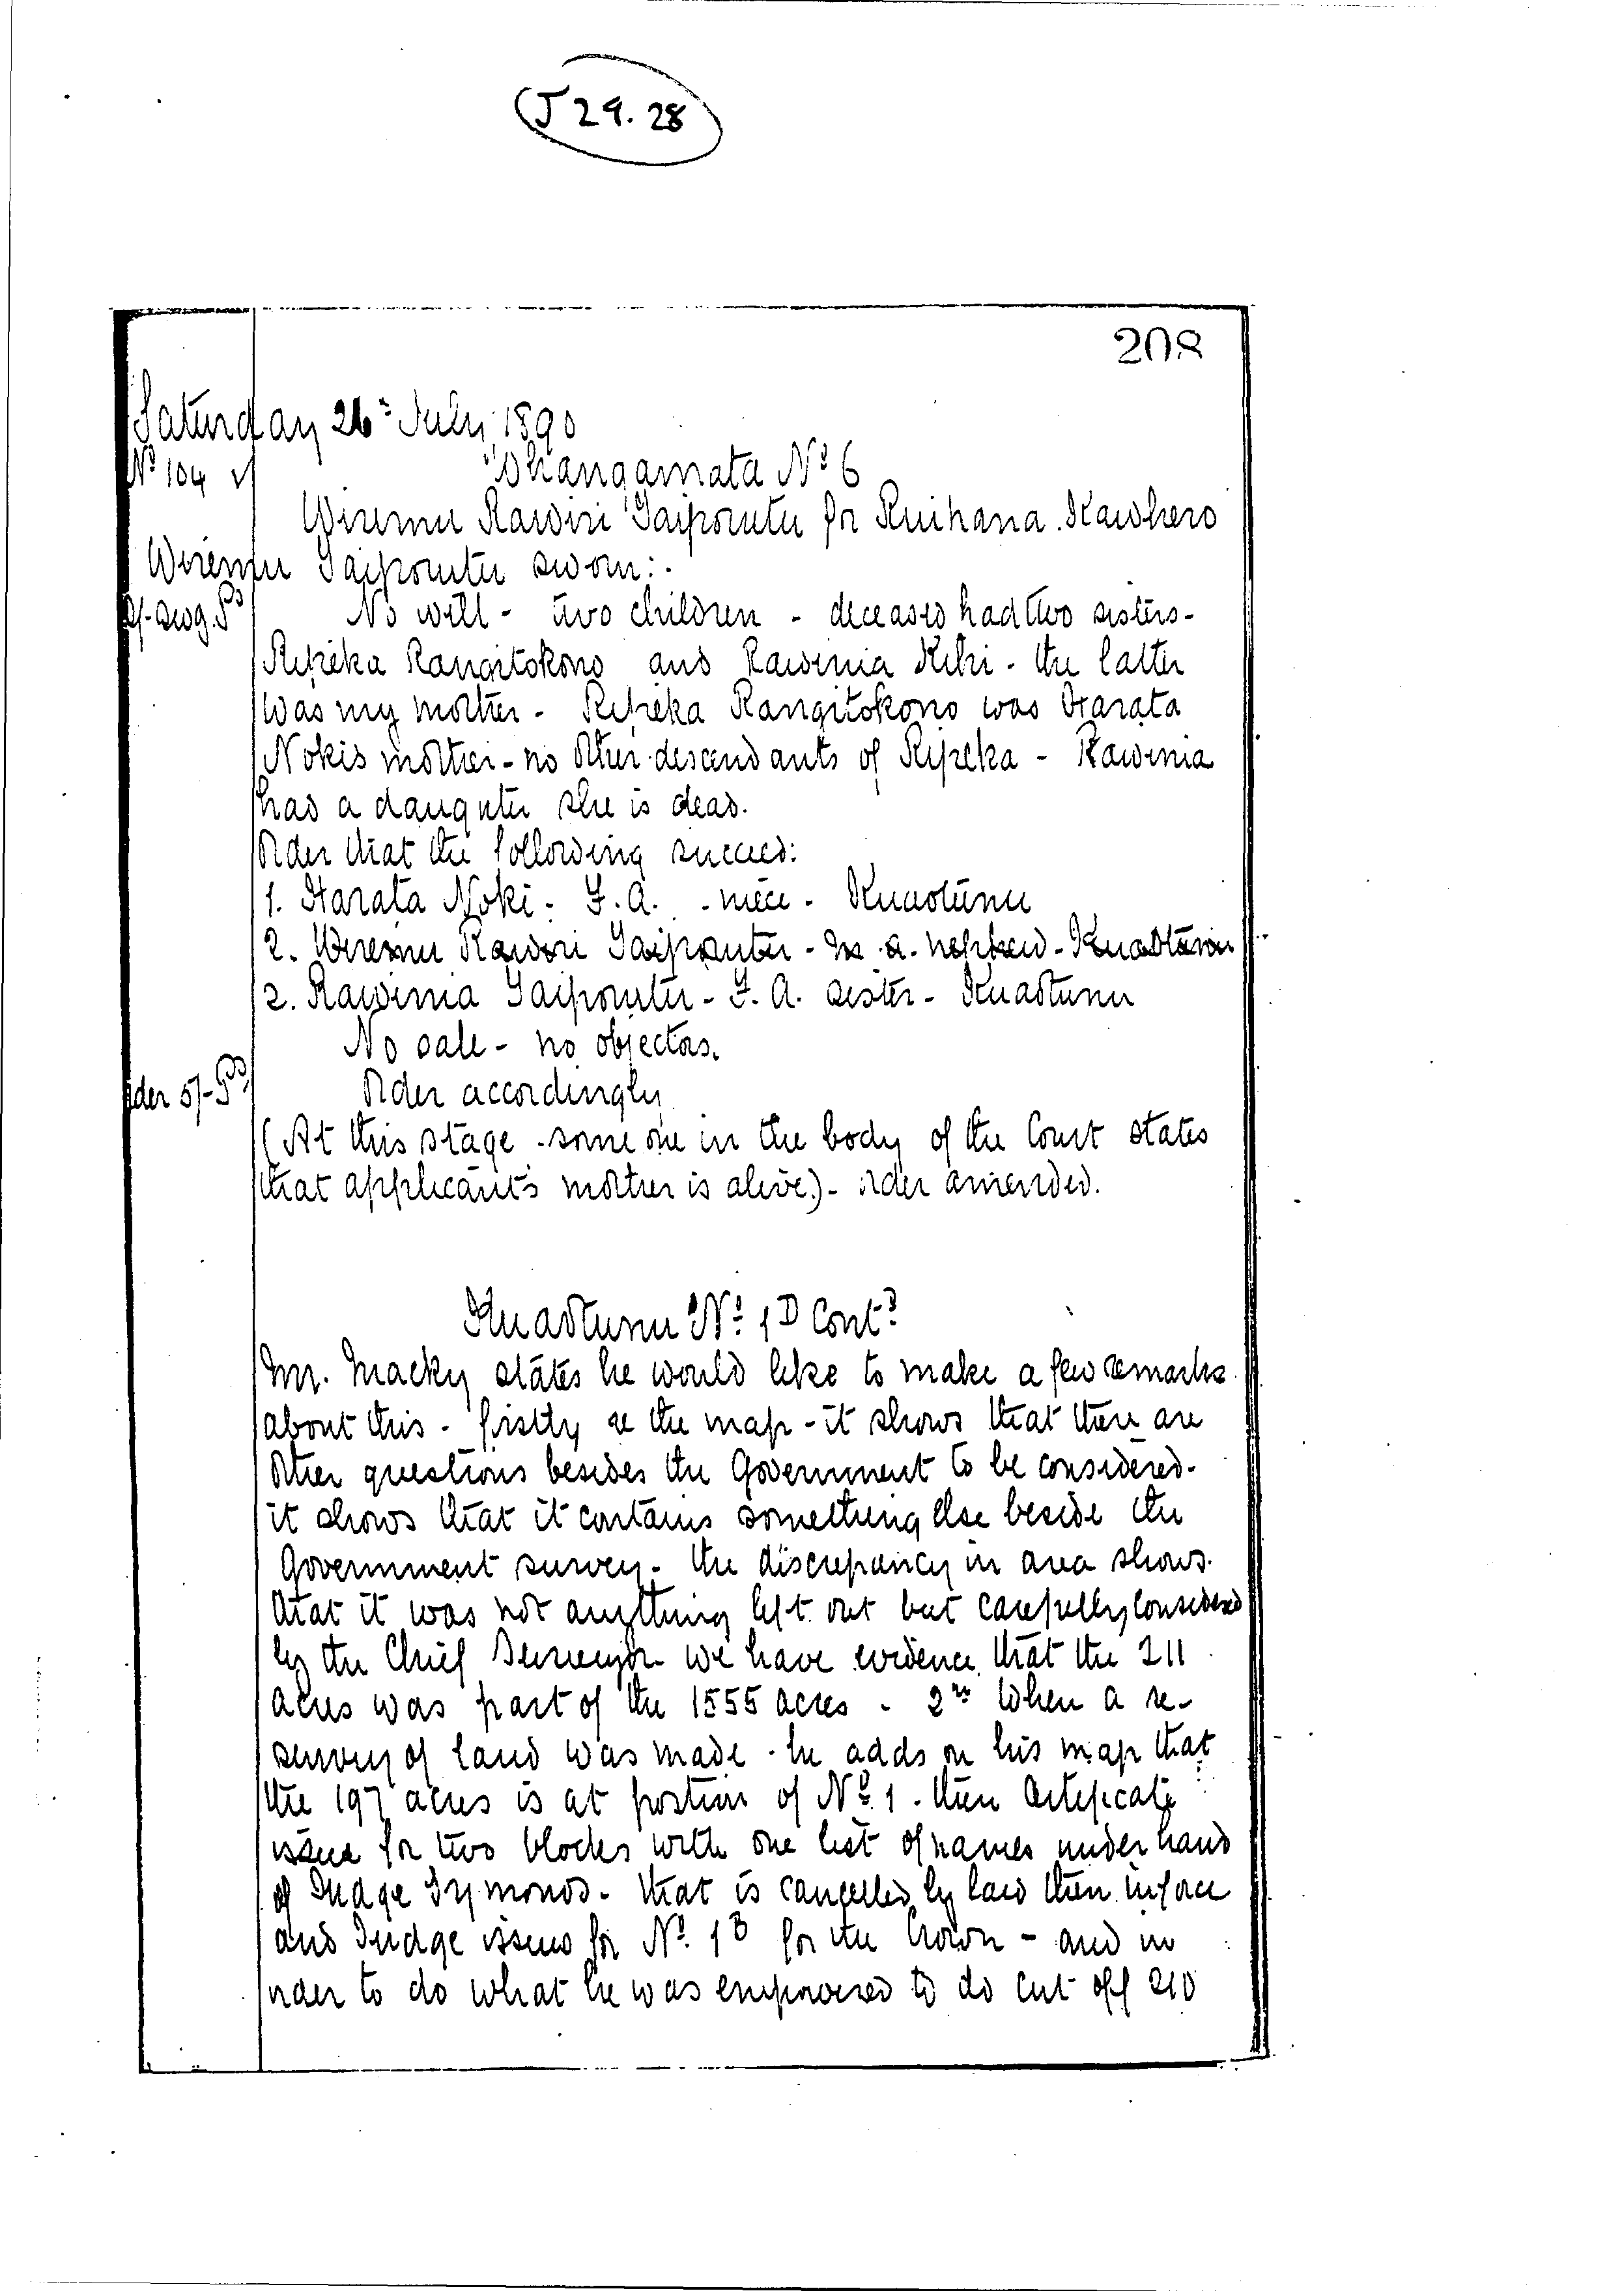 J 29.28
208
Saturday 26th July 1890
No 104
Whangamata No 6
Wiremu Rawiri Taiporutu for Ruihana Kawhero
Wiremu Taiporutu sworn:.
No will - two children - deceased had two sisters -
Ripeka Rangitokono and Rawinia Kihi - the latter
was my mother - Ripeka Rangitokono was Harata
Nokis mother - no other descendants of Ripeka - Rawinia
has a daughter she is dead.
Order that the following succeed:
1. Harata Noki - F. A. - niece - Kuaotunu
2. Wiremu Rawiri Taiporutu - M. A. nephew - Kuaotunu
2. Rawinia Taiporutu - F. A. sister - Kuaotunu
No sale - no objectors.
Order 5/- Pd
Order accordingly
(At this stage some one in the body of the Court states
that applicant's mother is alive) - order amended.
Kuaotunu No 1D Contd
Mr. Macky states he would like to make a few remarks
about this - firstly re the map - it shows that there are
other questions besides the Government to be considered -
it shows that it contains something else beside the
Government survey - the discrepancy in area shows
that it was not anything left out but carefully considered
by the Chief Surveyor we have evidence that the 211
acres was part of the 1555 acres - 2nd When a re-
survey of land was made - he adds on his map that
the 197 acres is at portion of No 1 - then Certificate
issue for two blocks with one list of names under hand
of Judge Symonds - that is cancelled by law then in force
and Judge issues for No. 1B for the Crown - and in
order to do what he was empowered to do cut off 210